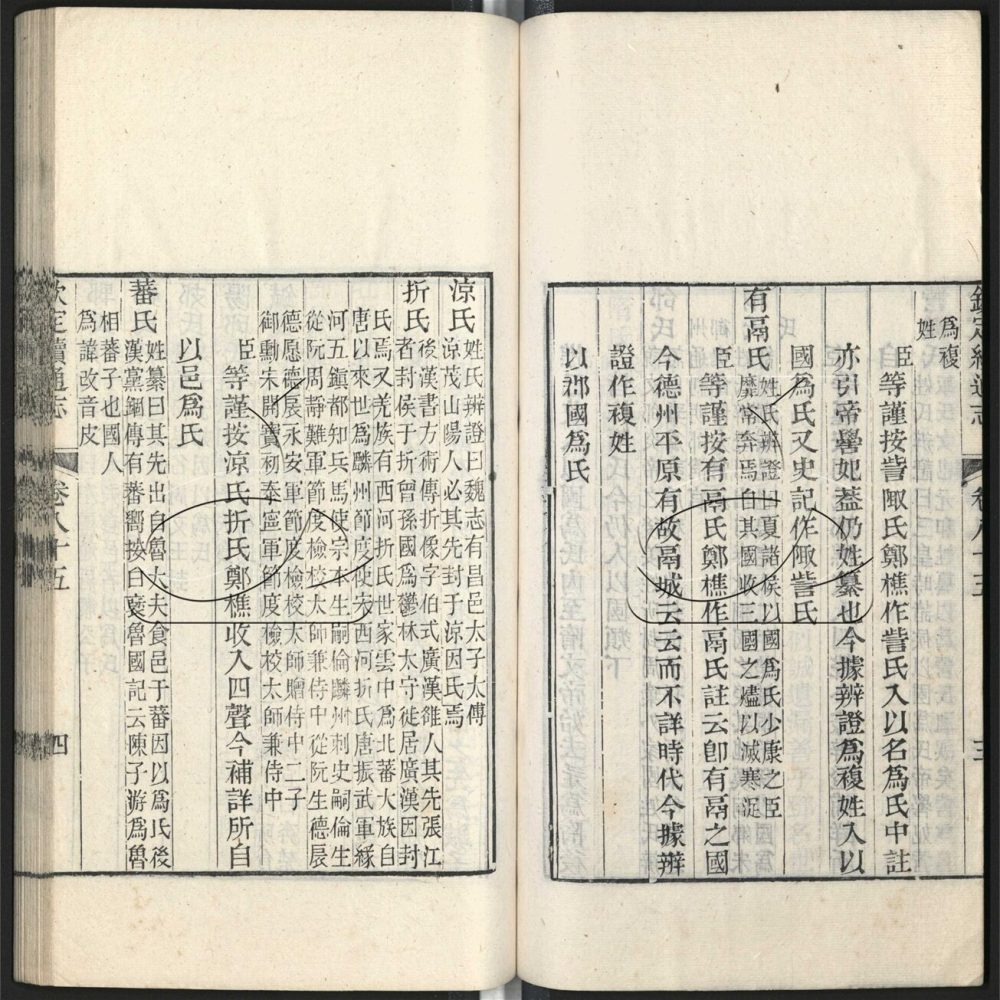 為複
姓
臣等謹按訾陬氏鄭樵作訾氏入以名為氏中註
亦引帝嚳妃蓋仍姓纂也今據辨證為複姓入以
國為氏又史記作陬訾氏
有鬲氏姓氏辨證曰夏諸侯以國為氏少康之臣
靡嘗奔焉自其國收三國之燼以滅寒浞
臣等謹按有鬲氏鄭樵作鬲氏註云卽有鬲之國
今德州平原有故鬲城云云而不詳時代今據辨
證作複姓
以郡國為氏
欽定續通志
卷八十五
三
涼氏姓氏辨證曰魏志有昌邑太子太傅
涼茂山陽人必其先封于涼因氏焉
折氏後漢書方術傳折像字伯式廣漢雒人其先張江
者封侯于折曾孫國為鬱林太守徙居廣漢因封
氏焉又羌族有西河折氏世家雲中為北蕃大族自
唐以來世為麟州節度使宋西河折氏唐振武軍緣
河五鎮都知兵馬使宗本生嗣倫麟州刺史嗣倫生
從阮周靜難軍節度檢校太師兼侍中從阮生德扆
德愿德扆永安軍節度檢校太師贈侍中二子
御勳宋開寶初奉寧軍節度檢校太師兼侍中
臣等謹按涼氏折氏鄭樵收入四聲今補詳所自
以邑為氏
蕃氏姓纂曰其先出自魯大夫食邑于蕃因以為氏後
漢黨錮傳有蕃嚮按白裒魯國記云陳子游為魯
相蕃子也國人
為諱改音皮
欽定續通志
卷八十五
四